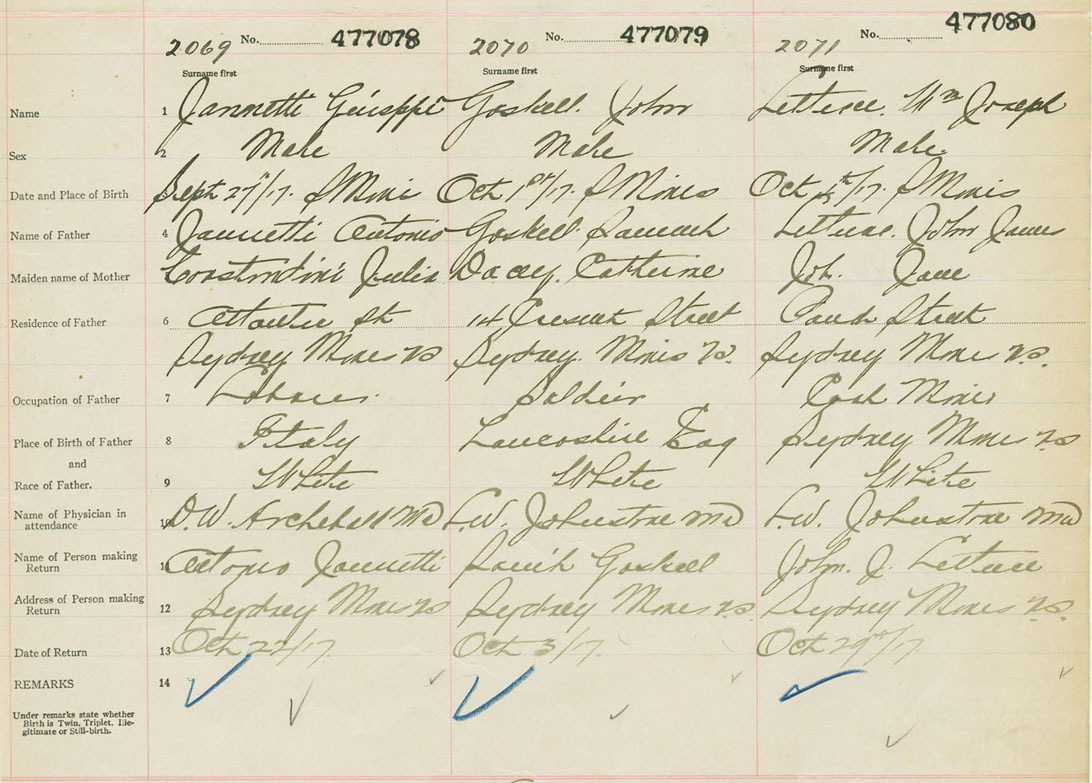 2069 No. 477078 2070 No. 477079 2071 No. 477080
Surname first Surname first Surname first
Name 1 Jannetti Guiseppi Goskell. John Lettuce. Wm Joseph
Sex 2 Male Male Male.
Date and Place of Birth Sept 27"/17. S Mines Oct 1st/17. S Mines Oct 5th/17. S Mines
Name of Father 4 Jannetti Antonio Goskell Lettuce. John James
Maiden name of Mother Costondini Julia Dacey, Catherine Jane
Residence of Father 6 Atlantic St 14 Cresent Street Street
Sydney Mines NS Sydney. Mines NS. Sydney Mines NS.
Occupation of Father 7 Laborer. Soldier Coal Miner
Place of Birth of Father 8 Italy Lancashire Eng Sydney Mines NS
and
Race of Father. 9 White White White
Name of Physician in 10 D.W. Archibald MD L.W. Johnstone MD L.W. Johnstone MD
attendance
Name of Person making 11 Antonio Jannetti Goskell John. J. Lettuce
Return
Address of Person making 12 Sydney Mines NS Sydney Mines NS Sydney Mines NS.
Return
Date of Return 13 Oct 22/17 Oct 3/17. Oct 29th/17
REMARKS 14
Under remarks state whether
Birth is Twin, Triplet, Ille-
gitimate or Still-birth.